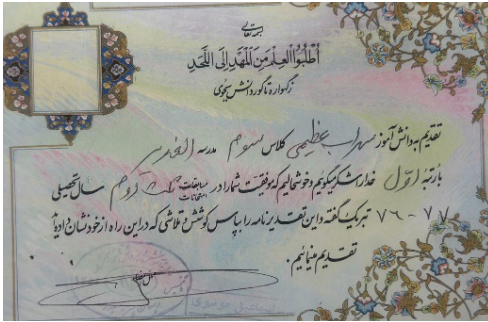 بسمه تعالی
اُطْلُبُوا الْعِلْمَ مِنَ الْمَهْدِ اِلَی اللَّحَدِ
زگهواره تا گور دانش بجوی
تقدیم به دانش آموز سهراب عظیمی کلاس سوم مدرسه القدس
با رتبه اول خدا را شکر میگوییم و خوشحالیم که موفقیت شما را در مسابقات امتحانات ثلث دوم سال تحصیلی
۷۶-۷۷ تبریک گفته و این تقدیرنامه را بپاس کوشش و تلاشی که در این راه از خود نشان داده‌اید
تقدیم مینمائیم.